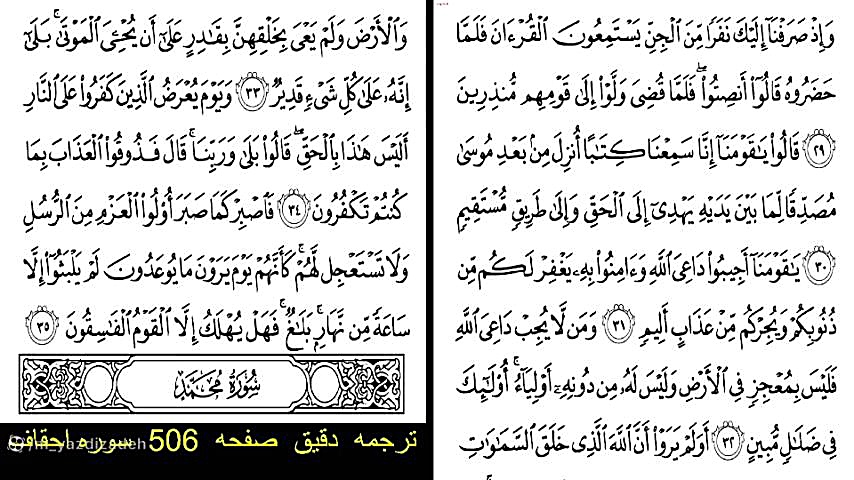 وَإِذۡ صَرَفۡنَآ إِلَيۡكَ نَفَرٗا مِّنَ ٱلۡجِنِّ يَسۡتَمِعُونَ ٱلۡقُرۡءَانَ فَلَمَّا
حَضَرُوهُ قَالُوٓاْ أَنصِتُواْۖ فَلَمَّا قُضِيَ وَلَّوۡاْ إِلَىٰ قَوۡمِهِم مُّنذِرِينَ
٢٩ قَالُواْ يَٰقَوۡمَنَآ إِنَّا سَمِعۡنَا كِتَٰبًا أُنزِلَ مِنۢ بَعۡدِ مُوسَىٰ
مُصَدِّقٗا لِّمَا بَيۡنَ يَدَيۡهِ يَهۡدِيٓ إِلَى ٱلۡحَقِّ وَإِلَىٰ طَرِيقٖ مُّسۡتَقِيمٖ
٣٠ يَٰقَوۡمَنَآ أَجِيبُواْ دَاعِيَ ٱللَّهِ وَءَامِنُواْ بِهِۦ يَغۡفِرۡ لَكُم مِّن
ذُنُوبِكُمۡ وَيُجِرۡكُم مِّنۡ عَذَابٍ أَلِيمٖ ٣١ وَمَن لَّا يُجِبۡ دَاعِيَ ٱللَّهِ
فَلَيۡسَ بِمُعۡجِزٖ فِي ٱلۡأَرۡضِ وَلَيۡسَ لَهُۥ مِن دُونِهِۦٓ أَوۡلِيَآءُۚ أُوْلَٰٓئِكَ
فِي ضَلَٰلٖ مُّبِينٍ ٣٢ أَوَلَمۡ يَرَوۡاْ أَنَّ ٱللَّهَ ٱلَّذِي خَلَقَ ٱلسَّمَٰوَٰتِ
وَٱلۡأَرۡضَ وَلَمۡ يَعۡيَ بِخَلۡقِهِنَّ بِقَٰدِرٍ عَلَىٰٓ أَن يُحۡـِۧيَ ٱلۡمَوۡتَىٰۚ بَلَىٰٓ
إِنَّهُۥ عَلَىٰ كُلِّ شَيۡءٖ قَدِيرٞ ٣٣ وَيَوۡمَ يُعۡرَضُ ٱلَّذِينَ كَفَرُواْ عَلَى ٱلنَّارِ
أَلَيۡسَ هَٰذَا بِٱلۡحَقِّۖ قَالُواْ بَلَىٰ وَرَبِّنَاۚ قَالَ فَذُوقُواْ ٱلۡعَذَابَ بِمَا
كُنتُمۡ تَكۡفُرُونَ ٣٤ فَٱصۡبِرۡ كَمَا صَبَرَ أُوْلُواْ ٱلۡعَزۡمِ مِنَ ٱلرُّسُلِ
وَلَا تَسۡتَعۡجِل لَّهُمۡۚ كَأَنَّهُمۡ يَوۡمَ يَرَوۡنَ مَا يُوعَدُونَ لَمۡ يَلۡبَثُوٓاْ إِلَّا
سَاعَةٗ مِّن نَّهَارِۭۚ بَلَٰغٞۚ فَهَلۡ يُهۡلَكُ إِلَّا ٱلۡقَوۡمُ ٱلۡفَٰسِقُونَ ٣٥
سُورَةُ مُحَمَّدٍ
ترجمه دقیق صفحه 506 سوره احقاف
m_yazdizadeh